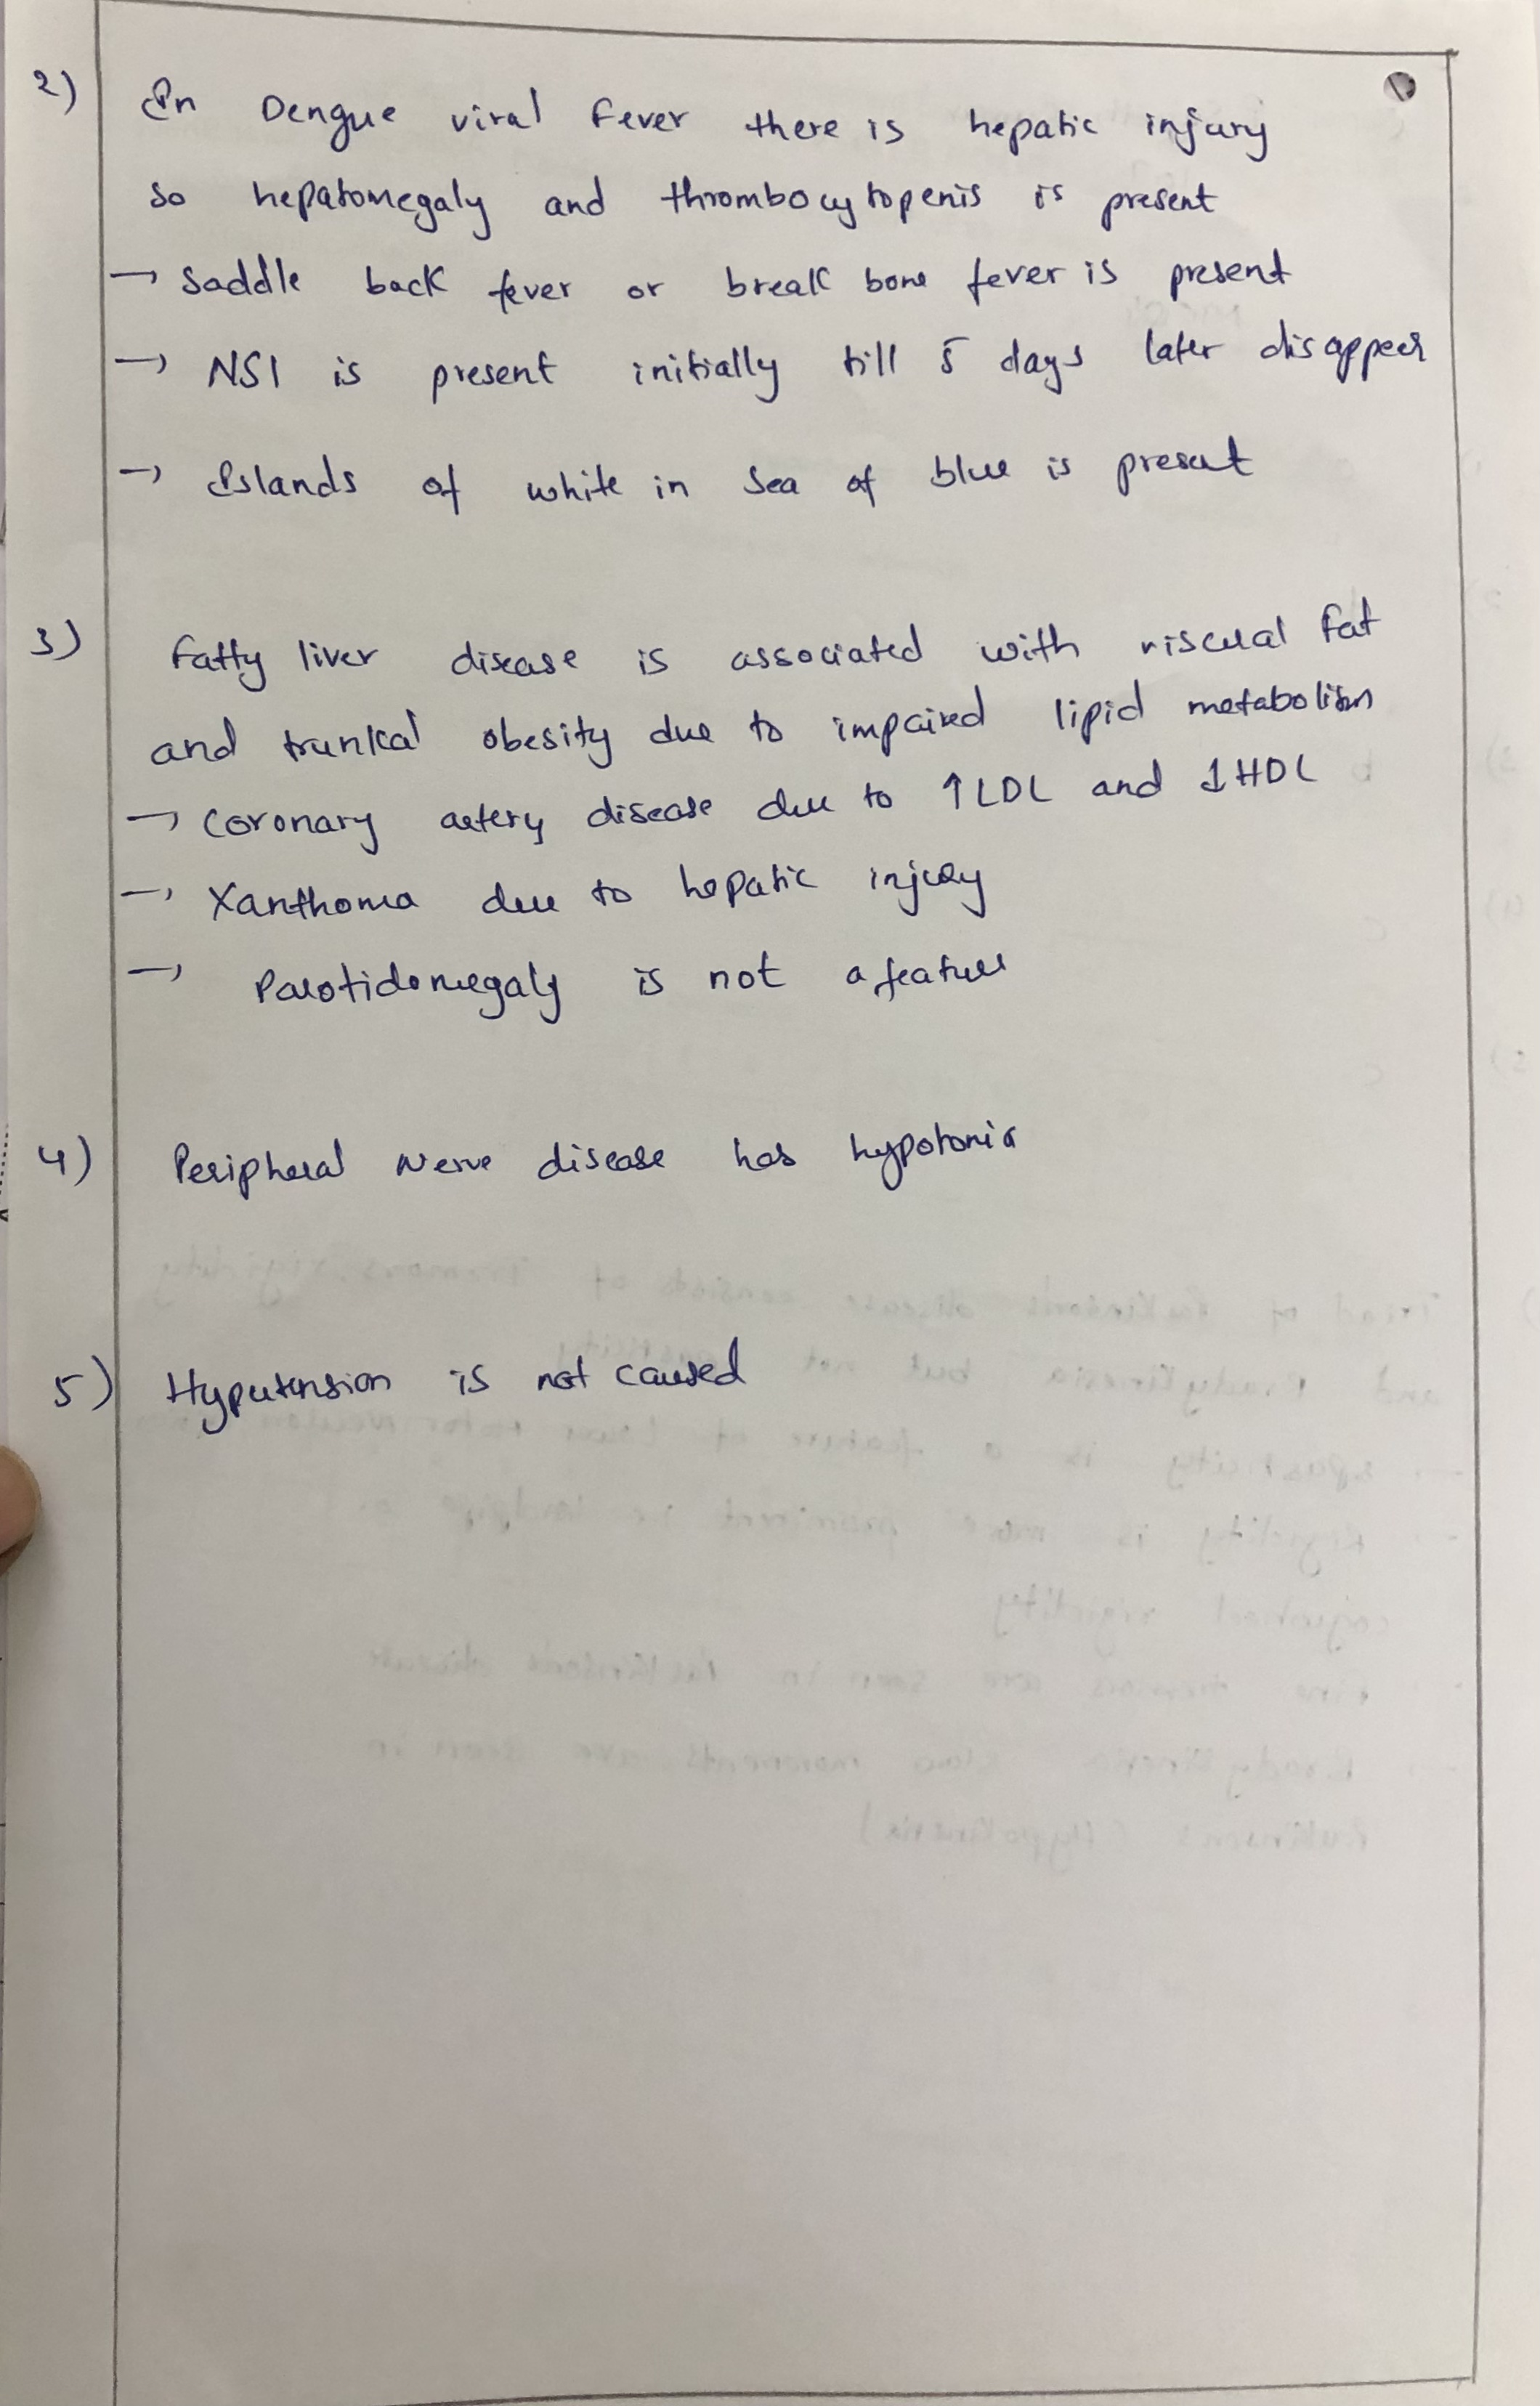 2) In Dengue viral fever there is hepatic injury
so hepatomegaly and thrombocytopenis is present
→ Saddle back fever or break bone fever is present
→ NS1 is present initially till 5 days later disappear
→ Islands of white in sea of blue is present
3) Fatty liver disease is associated with visceral fat
and trunkal obesity due to impaired lipid metabolism
→ Coronary artery disease due to ↑LDL and ↓HDL
→ Xanthoma due to hepatic injury
→ Parotidomegaly is not a feature
4) Peripheral Nerve disease has hypotonia
5) Hypertension is not caused